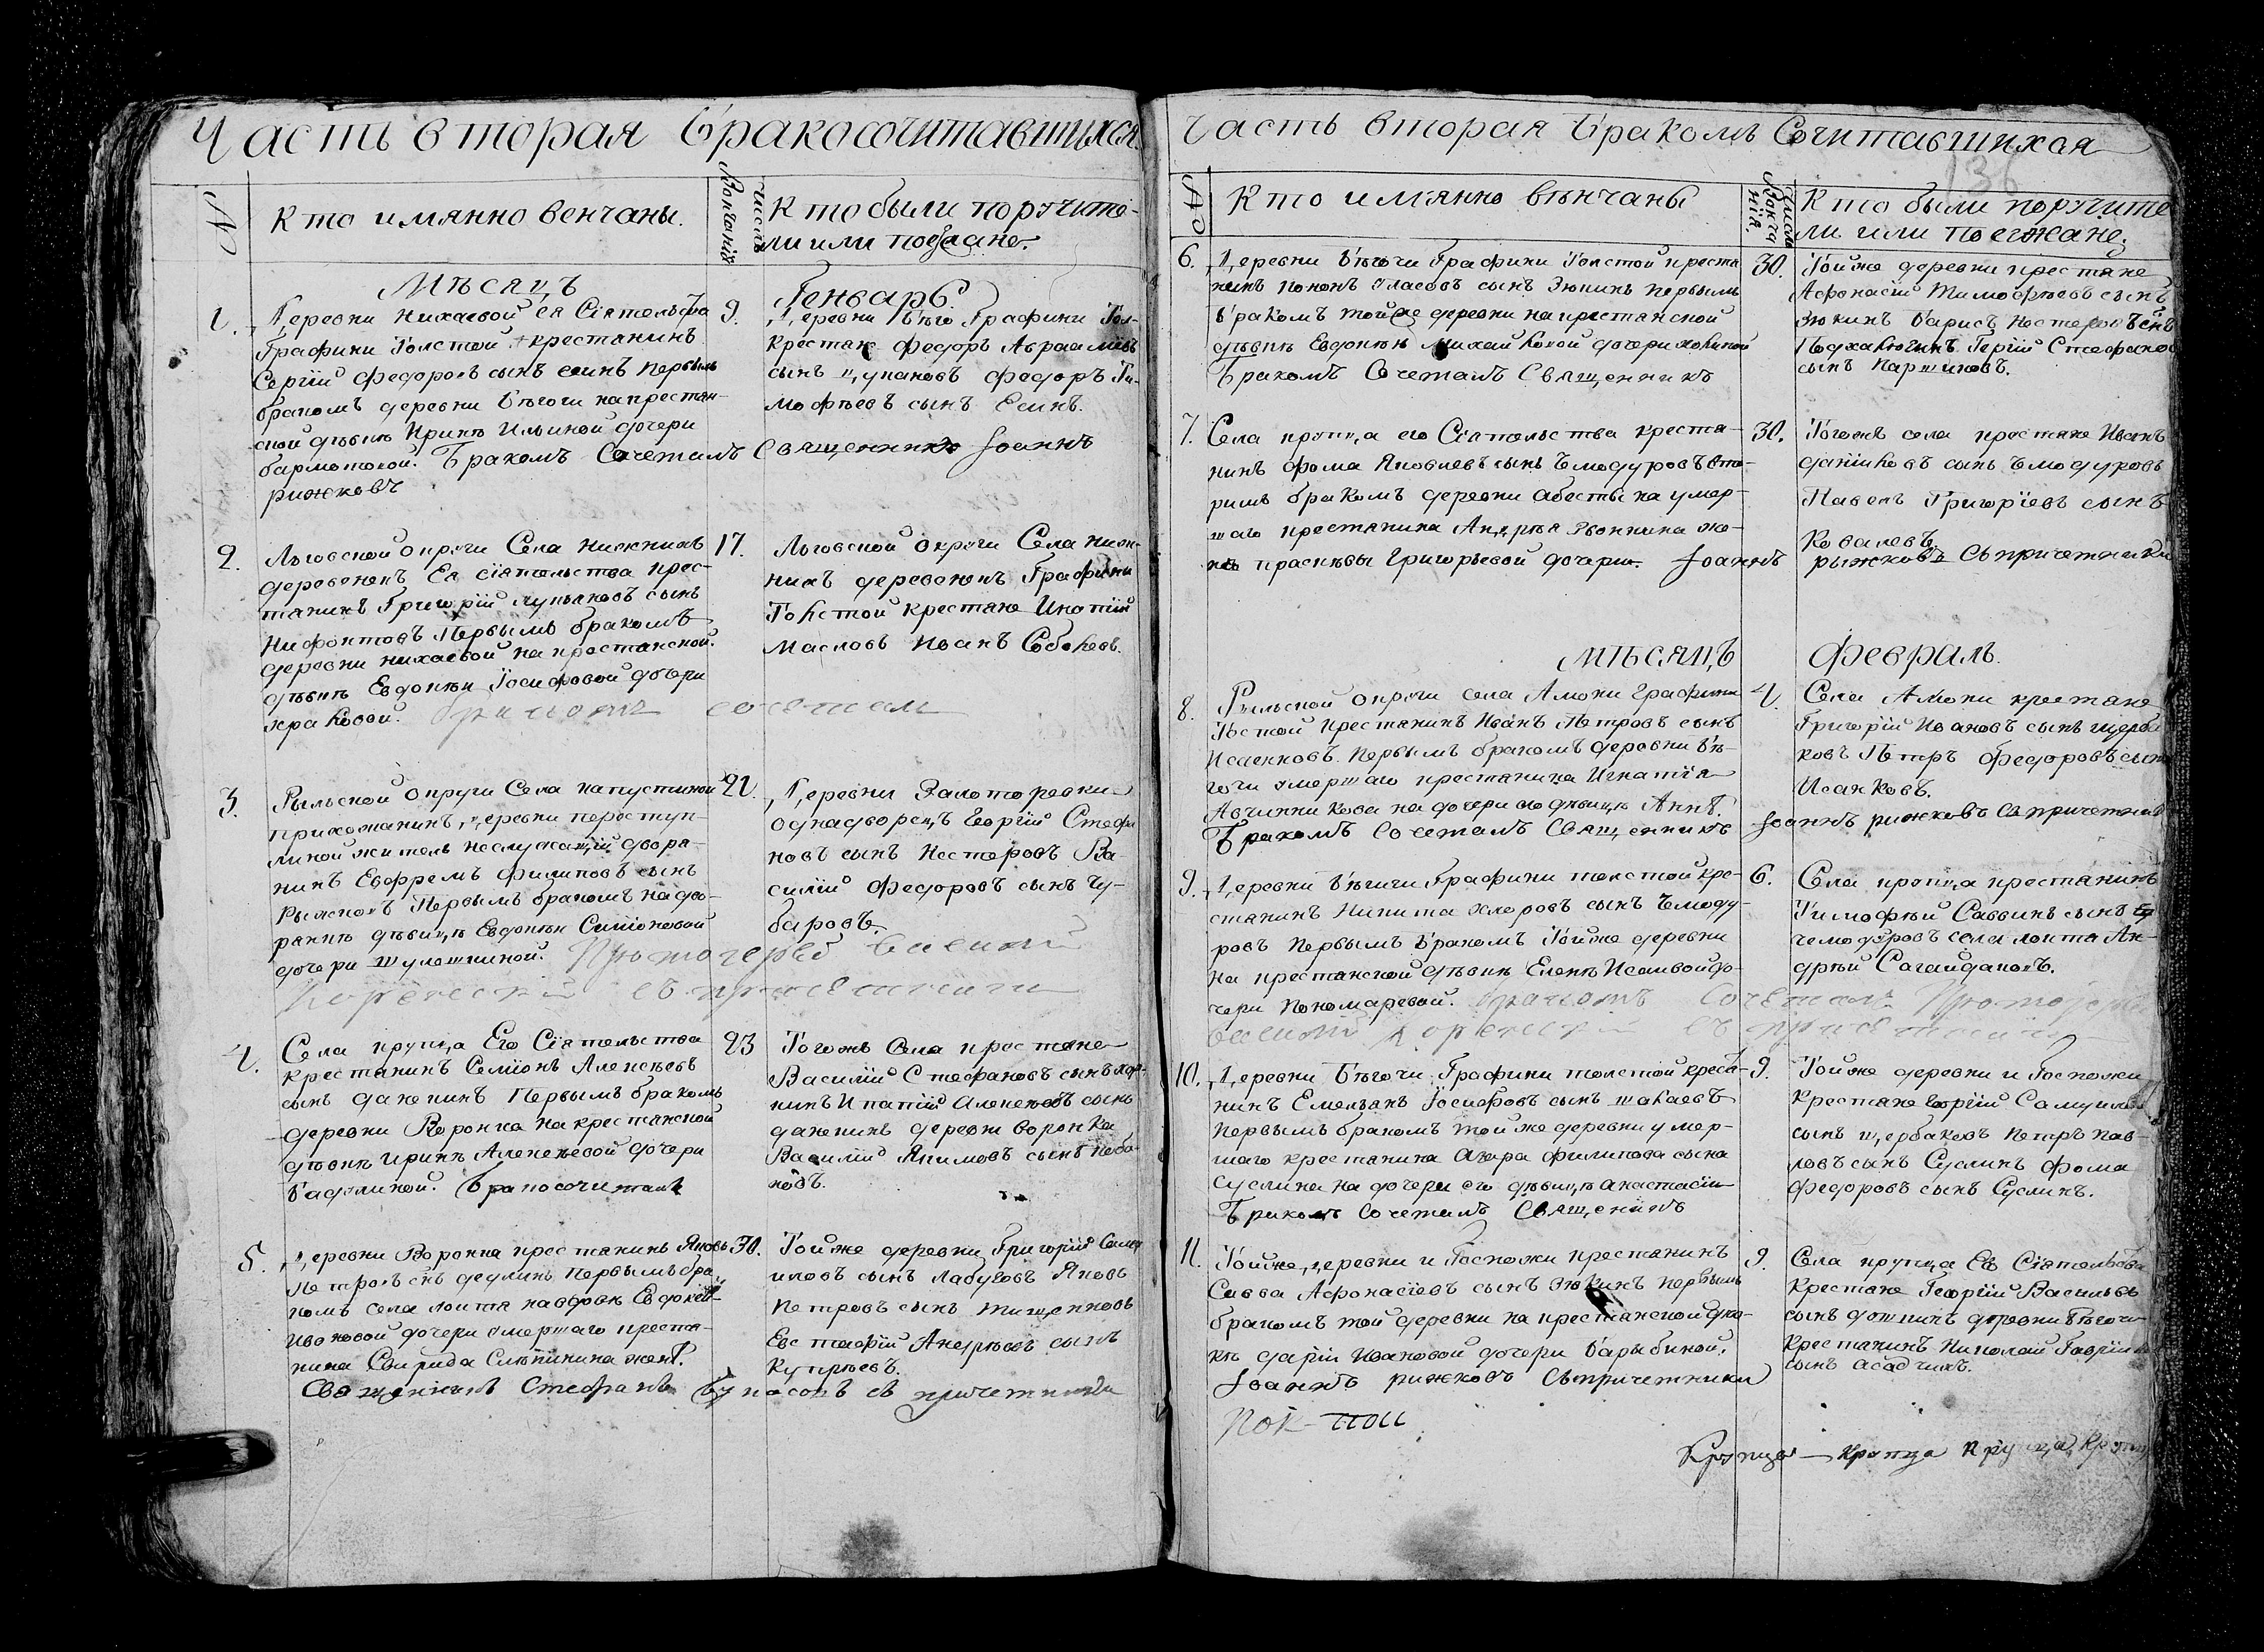 Часть вторая бракосочитавшихся
№
Кто имянно венчаны.
Число венчанія
Кто были поручите-
ли или поезжане.
Мѣсяцъ
Генварь.
1.
Деревни Нихаевой ея Сіятельства
Графини Толстой крестянинъ
Сергій Федоровъ сынъ Есинъ первымъ
бракомъ деревни Бѣгочи на крестян-
ской дѣвкѣ Иринѣ Ильиной дочери
Бракомъ Сочеталъ Священникъ Іоаннъ
рижковъ
9.
Деревни Бѣго Графини Тол-
крестяне Федоръ Авраамовъ
сынъ Цупиковъ Федоръ Ти-
мофѣевъ сынъ Есинъ.
2.
Льговской округи Села Нижнихъ
деревенекъ Ея сіятельства крес-
тянинъ Григорій сынъ
Нифонтовъ Первымъ бракомъ
деревни Нихаевой на крестянской
дѣвкѣ Евдокѣи Іосифовой дочери
бракомъ сочетал
17.
Льговской округи Села Ниж-
нихъ деревенекъ Графини
Толстой крестяне Ипатій
Масловъ Иванъ Соболевъ.
3.
Рыльской округи Села Капустиной
прихожанинъ, деревни переступ-
линой житель неслужащій дворя-
нинъ Евфремъ Филиповъ сынъ
Первымъ бракомъ на дво-
рянкѣ дѣвицѣ Евдокѣи Симіоновой
дочери Шулешкиной. Протоіерей
съ причетники
21.
Деревни Золоторевки
однадворецъ Георгій Стефа
новъ сынъ Нестеровъ Ва-
силій Федоровъ сынъ Чу-
баровъ.
4.
Села Крупца Его Сіятельства
крестянинъ Семіонъ Алексѣевъ
сынъ Первымъ бракомъ
деревни Воронка на крестянской
дѣвкѣ Иринѣ Алексѣевой дочери
Бракосочиталъ
23
Тогожъ Села крестяне
Василій Стефановъ сынъ
нинъ Ипатій Алексѣевъ сынъ
деревни Воронка
Василій Якимовъ сынъ
новъ.
5.
Деревни Воронка крестянинъ Яковъ
Петровъ снъ Дедлинъ первымъ бра
комъ села на вдовѣ Евдокѣи
Ивановой дочери умершаго крестя-
нина Свирида женѣ.
Священникъ Стефанъ съ причетники
30.
Тойже деревни Григорій
иловъ сынъ Лабузовъ Яковъ
Петровъ сынъ Тищенковъ
Евстафій Андрѣевъ сынъ
Купрѣевъ.
Часть вторая бракомъ Сочитавшихся
136
№
Кто имянно вѣнчаны
Число Вѣнча нія.
Кто были поручите
ли или поезжане.
6.
Деревни Бѣгочи Графини Толстой крестя
нинъ Власовъ сынъ Зюкинъ первымъ
бракомъ тойже деревни на крестянской
дѣвкѣ Евдокѣи дочери
Бракомъ Сочеталъ Священникъ
30.
Тойже деревни крестяне
Афонасій Тимофѣевъ сынъ
Зюкинъ Барисъ Нестеровъ снъ
Сергій Стефано
сынъ Паршиковъ.
7.
Села Крупца его Сіятельства крестя-
нинъ Фома Яковлевъ сынъ Чемодуровъ вто-
римъ бракомъ деревни на умер-
шаго крестянина Андрѣя же-
нѣ Прасковьи Григорьевой дочери. Іоаннъ
30.
Тогожъ села крестяне Иванъ
Даніиловъ сынъ Чемодуровъ
Павелъ Григоріевъ сынъ
Ковалевъ
рыжковъ Съ причетники
Мѣсяцъ
Февраль.
8.
Рыльской округи села Амони Графини
Тостой крестянинъ Иванъ Петровъ сынъ
Исаенковъ Первымъ бракомъ деревни Бѣ-
гочи умершаго крестянина Игнатія
Авчинникова на дочери ево дѣвицѣ Аннѣ.
Бракомъ Сочеталъ Священникъ
4.
Села Амони крестяне
Григорій Ивановъ сынъ Щерба
ковъ Петръ Федоровъ сынъ
Исанковъ.
Іоаннъ рижковъ Съ причетники
9.
Деревни Бѣгичи Графини толстой кре-
стянинъ Никита сынъ Чемоду-
ровъ первымъ бракомъ Тойже деревни
на крестянской дѣвкѣ Еленѣ Исаивой до-
чери Пономаревой. бракомъ Сочеталъ Протоіерей
съ причетники
6.
Села Крупца крестянинъ
Тимофѣй Саввинъ сынъ
Чемодуровъ села Ан-
дрѣй Сагайдаковъ.
10.
Деревни Бѣгочи Графини толстой крестя-
нинъ Емельянъ Іосифовъ сынъ
Первымъ бракомъ той же деревни умер-
шаго крестянина Филипова сына
Суслина на дочери его дѣвицѣ Анастасіи
Бракомъ Сочеталъ Священикъ
9.
Тойже деревни и Госпожи
крестяне Георгій Самуил
сынъ Щербаковъ Петръ Пав-
ловъ сынъ Суслинъ Фома
Федоровъ сынъ Суслинъ.
11.
Тойже деревни и Госпожи крестянинъ
Савва Афонасіевъ сынъ Зюкинъ первымъ
бракомъ той деревни на крестянской дѣв-
кѣ Даріи Ивановой дочери Барыбиной.
Іоаннъ рижковъ Съ причетники
9.
Села Крупца Ев Сіятельства
крестяне Георгій Васильевъ
сынъ деревни Бѣгочи
крестянинъ Николай Гавріил
сынъ Асадчихъ.
Крупца — Крупца Крупца Круп